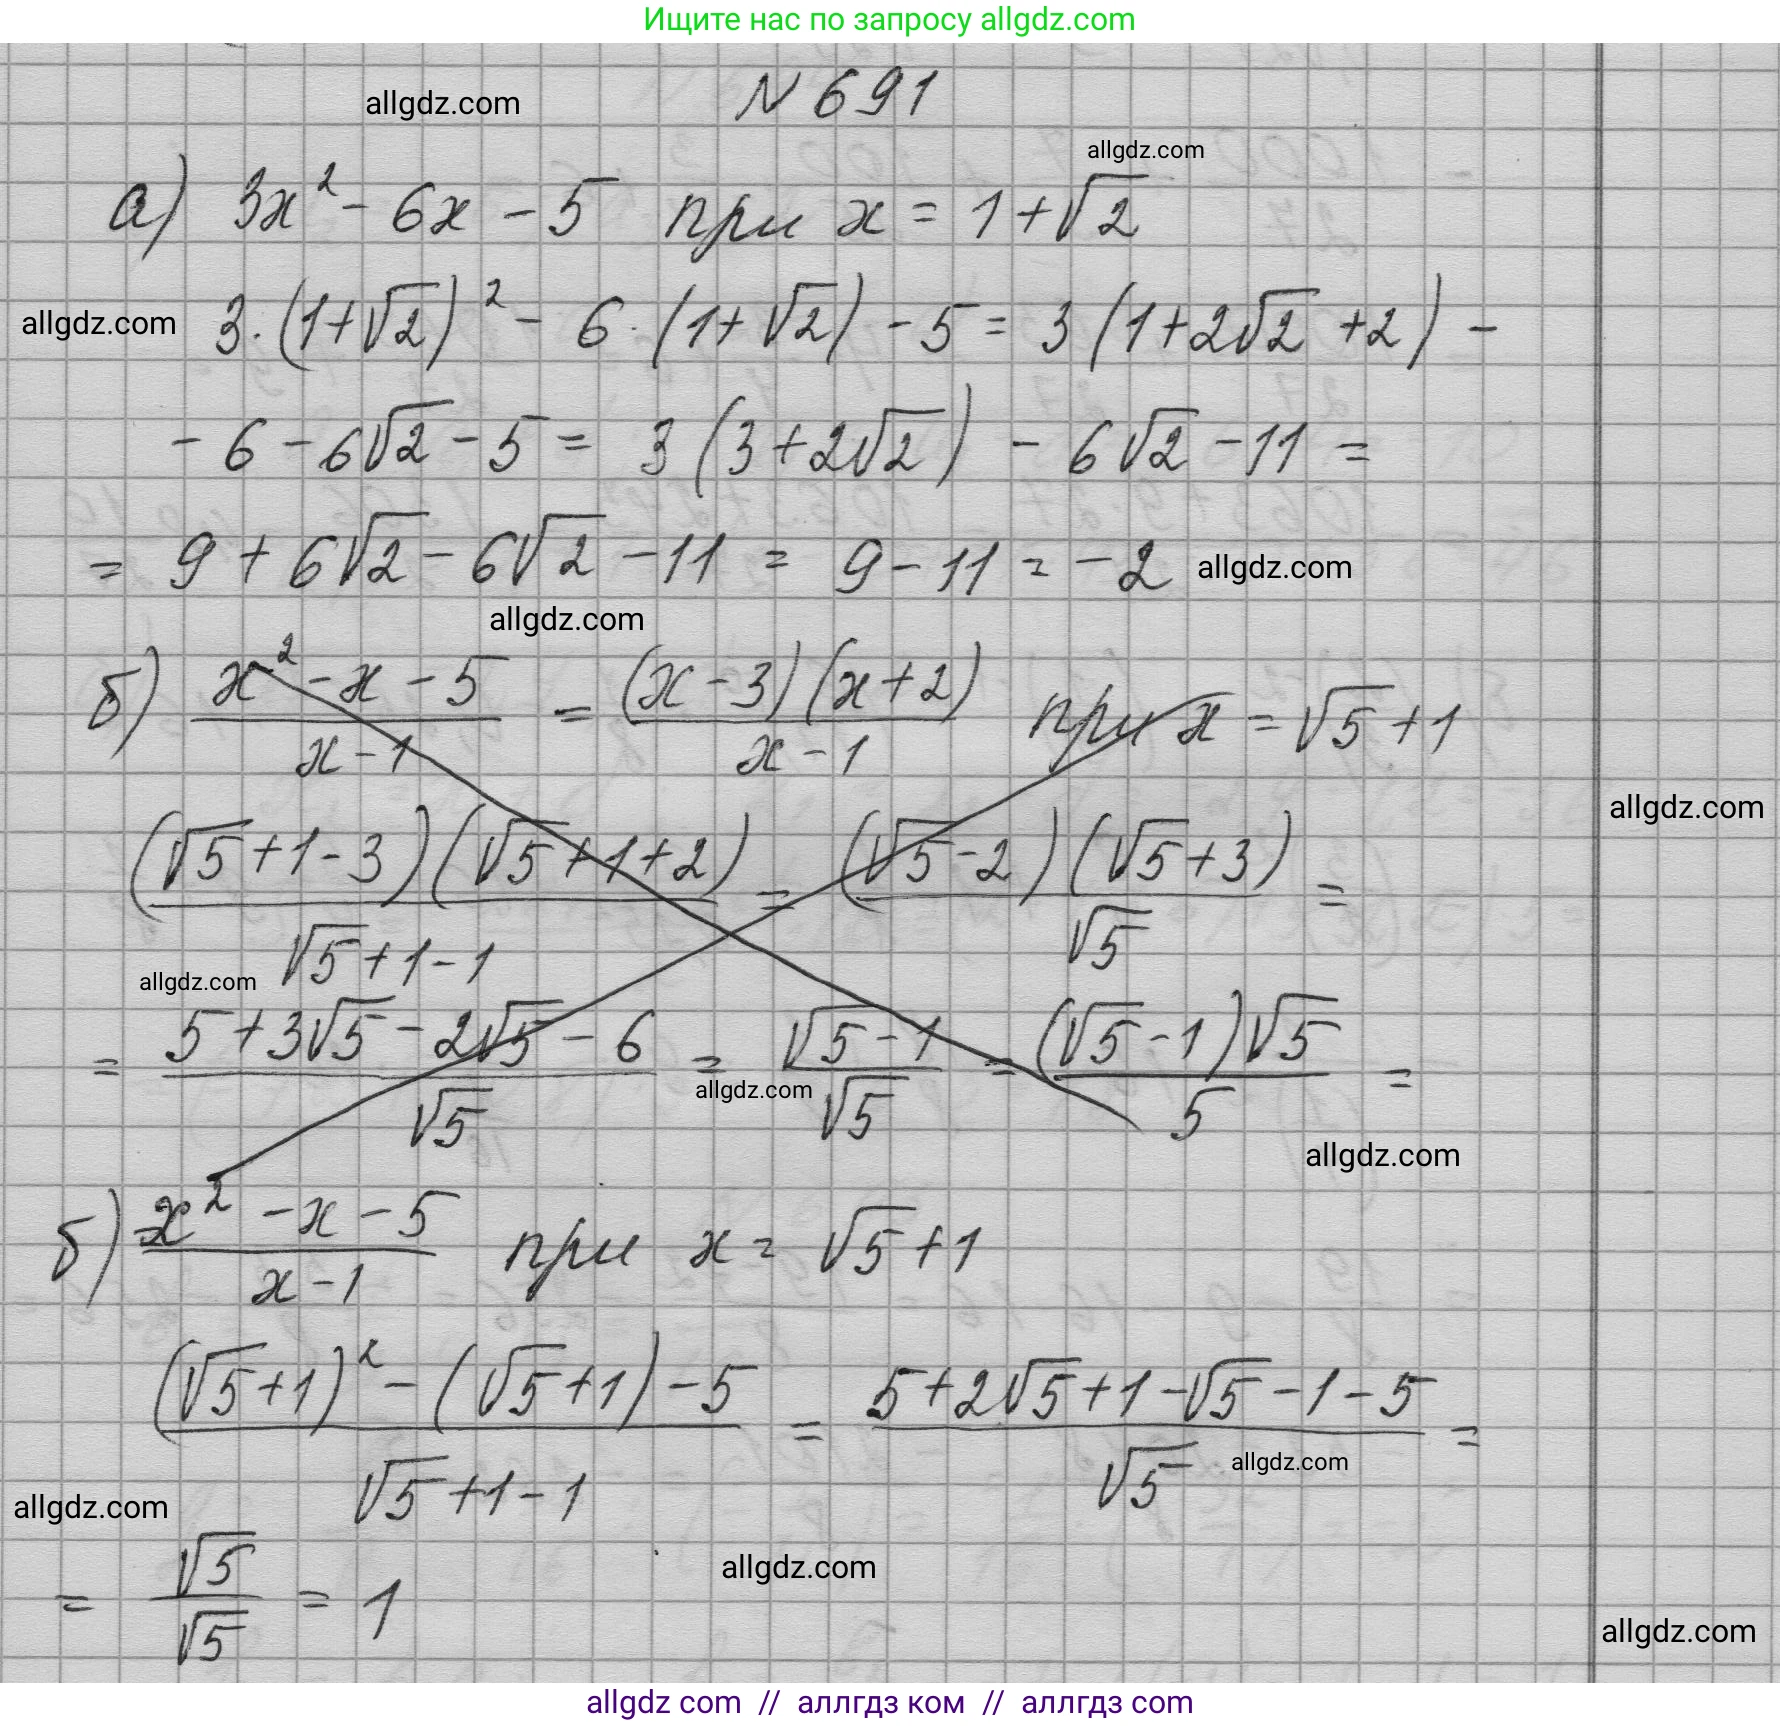 Ищите нас по запросу allgdz.com
№ 691
allgdz.com
allgdz.com
а) 3x² - 6x - 5 при x = 1 + √2
allgdz.com
3·(1+√2)² - 6·(1+√2) - 5 = 3(1+2√2+2) -
- 6 - 6√2 - 5 = 3(3+2√2) - 6√2 - 11 =
= 9 + 6√2 - 6√2 - 11 = 9 - 11 = -2
allgdz.com
allgdz.com
б) (x² - x - 5)/(x - 1) = ((x-3)(x+2))/(x - 1) при x = √5 + 1
allgdz.com
((√5+1-3)(√5+1+2))/(√5+1-1) = ((√5-2)(√5+3))/√5 =
allgdz.com
= (5+3√5-2√5-6)/√5 = (√5-1)/√5 = ((√5-1)√5)/5 =
allgdz.com
allgdz.com
б) (x² - x - 5)/(x - 1) при x = √5 + 1
((√5+1)² - (√5+1) - 5)/(√5+1-1) = (5+2√5+1-√5-1-5)/√5 =
allgdz.com
allgdz.com
= √5/√5 = 1
allgdz.com
allgdz.com
allgdz com // аллгдз ком // аллгдз com